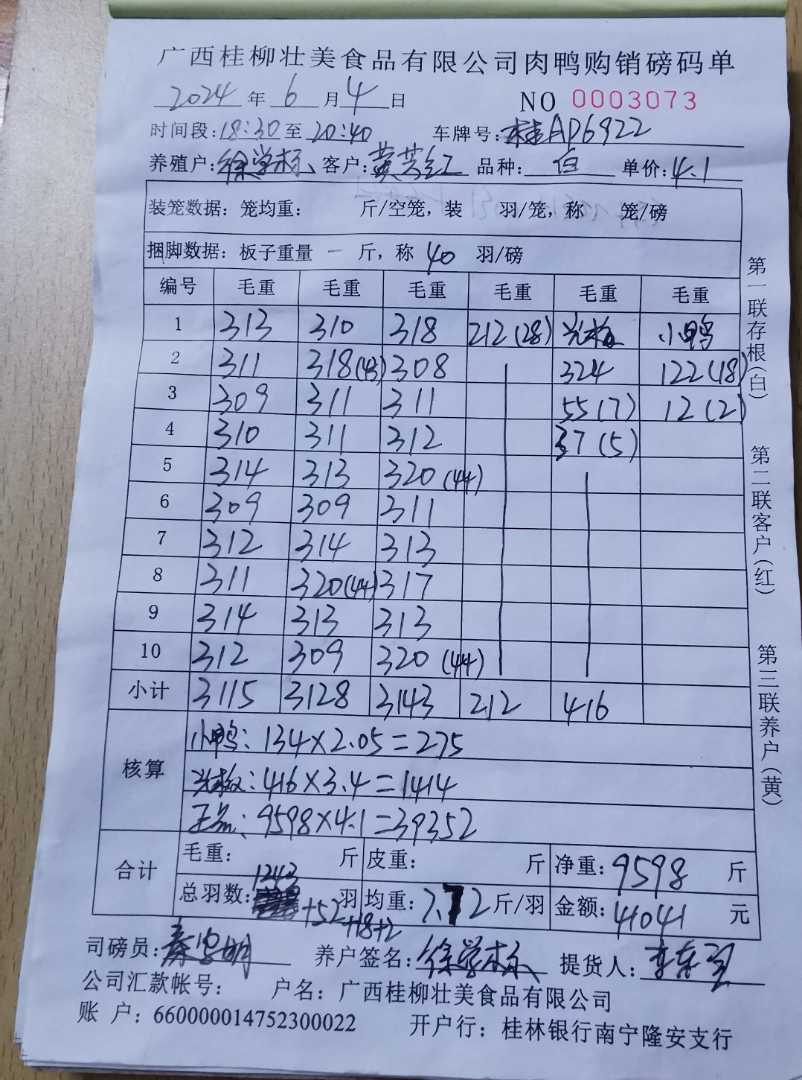 广西桂柳壮美食品有限公司肉鸭购销磅码单
2024 年 6 月 4 日 NO 0003073
时间段: 18:30 至 20:40 车牌号: 桂AD6922
养殖户: 徐学标 客户: 黄芳红 品种: 白 单价: 4.1
装笼数据: 笼均重: 斤/空笼, 装 羽/笼, 称 笼/磅
捆脚数据: 板子重量 一 斤, 称 40 羽/磅
编号 毛重 毛重 毛重 毛重 毛重 毛重
1 313 310 318 212(28) 光板 小鸭
2 311 318(43) 308 324 122(18)
3 309 311 311 55(7) 12(2)
4 310 311 312 37(5)
5 314 313 320(44)
6 309 309 311
7 312 314 313
8 311 320(44) 317
9 314 313 313
10 312 309 320(44)
小计 3115 3128 3143 212 416
核算 小鸭: 134×2.05=275
光板: 416×3.4=1414
正品: 9598×4.1=39352
合计 毛重: 斤 皮重: 斤 净重: 9598 斤
总羽数: 1243 +52 +18+2 羽 均重: 7.72 斤/羽 金额: 41041 元
司磅员: 秦 明 养户签名: 徐学标 提货人: 李
公司汇款帐号: 户名: 广西桂柳壮美食品有限公司
账 户: 660000014752300022 开户行: 桂林银行南宁隆安支行
第一联存根(白)
第二联客户(红)
第三联养户(黄)